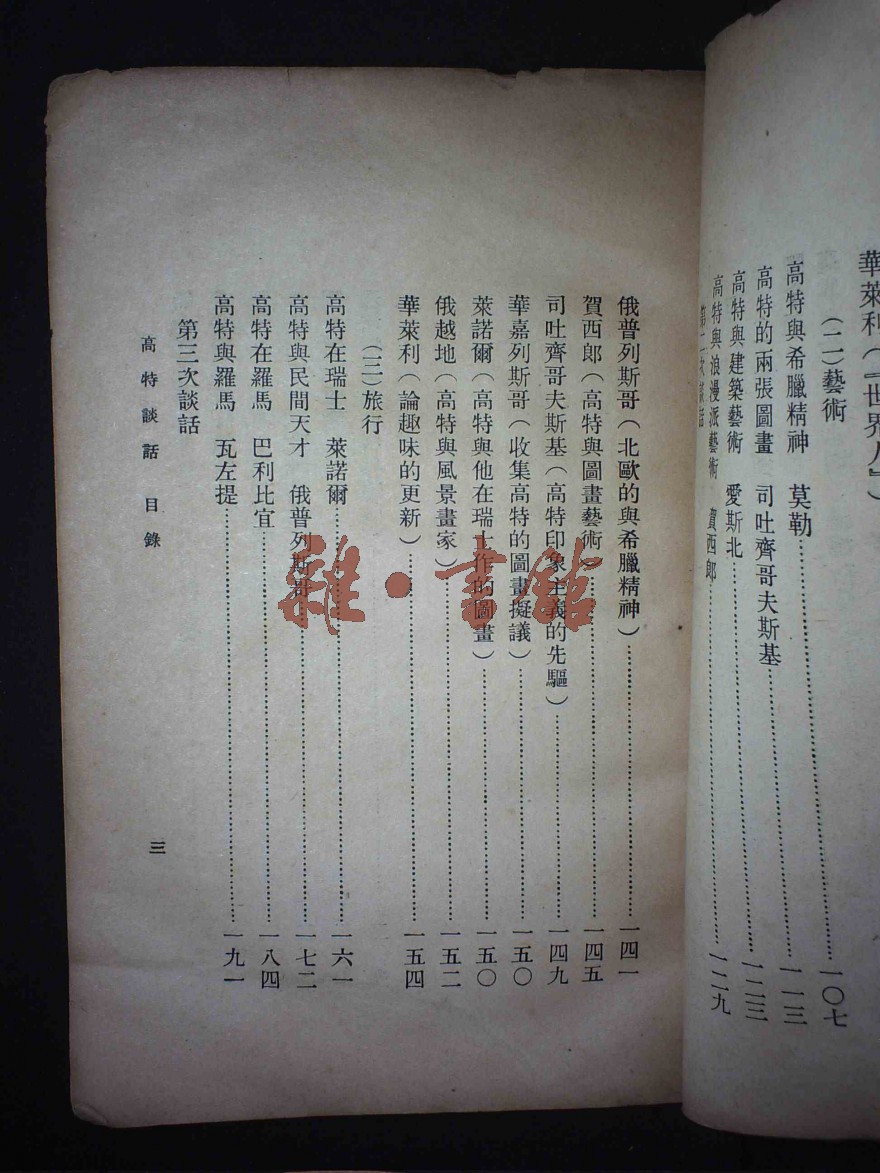 華萊利（『世界人』）
（二）藝術
高特與希臘精神　莫勒……一〇七
高特的兩張圖畫　司吐齊哥夫斯基……一一三
高特與建築藝術　愛斯北……一二三
高特與浪漫派藝術　賀西郎……一二九
第二次談話
俄普列斯哥（北歐的與希臘精神）……一四一
賀西郎（高特與圖畫藝術）……一四五
司吐齊哥夫斯基（高特印象主義的先驅）……一四九
華嘉列斯哥（收集高特的圖畫擬議）……一五〇
萊諾爾（高特與他在瑞士作的圖畫）……一五〇
俄越地（高特與風景畫家）……一五二
華萊利（論趣味的更新）……一五四
（三）旅行
高特在瑞士　萊諾爾……一六一
高特與民間天才　俄普列斯哥……一七二
高特在羅馬　巴利比宜……一八四
高特與羅馬　瓦左提……一九一
第三次談話
高特談話　目錄
三
雜·書館